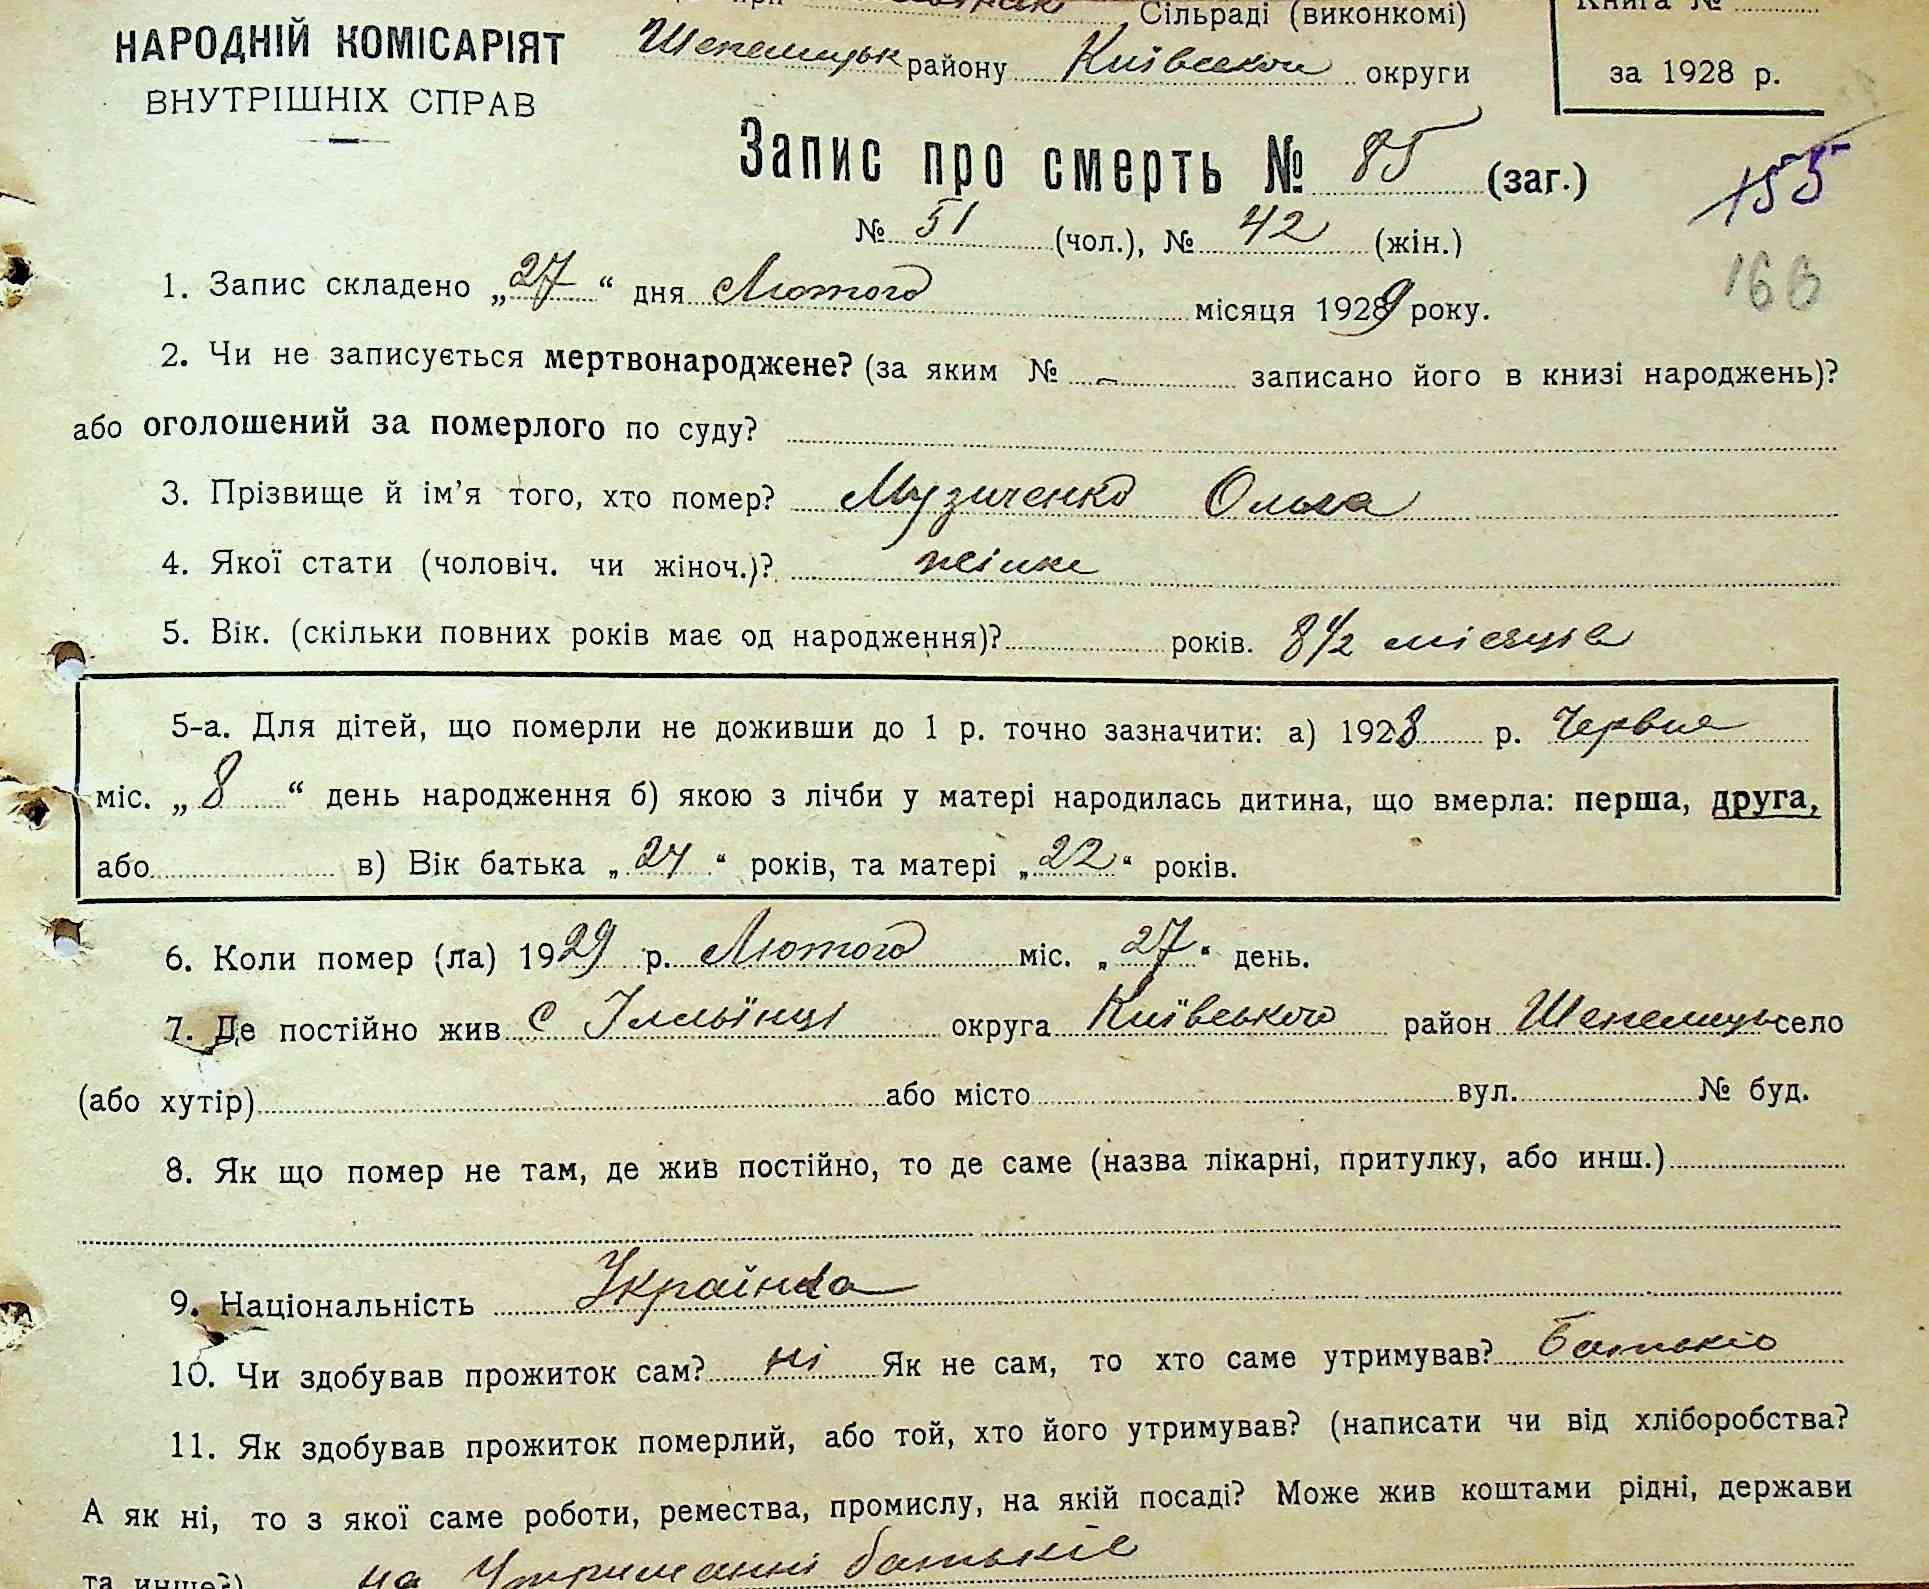 при Сільраді (виконкомі)
Книга №
НАРОДНІЙ КОМІСАРІЯТ
ВНУТРІШНІХ СПРАВ
Шепелицьк району Київської округи
за 1928 р.
Запис про смерть № 85 (заг.)
155
№ 51 (чол.), № 42 (жін.)
166
1. Запис складено „27“ дня Лютого місяця 1929 року.
2. Чи не записується мертвонароджене? (за яким № – записано його в книзі народжень)?
або оголошений за померлого по суду?
3. Прізвище й ім’я того, хто помер? Музиченко Ольга
4. Якої стати (чоловіч. чи жіноч.)? жінки
5. Вік. (скільки повних років має од народження)? років. 8 1/2 місяців
5-а. Для дітей, що померли не доживши до 1 р. точно зазначити: а) 1928 р. Червня
міс. „8“ день народження б) якою з лічби у матері народилась дитина, що вмерла: перша, друга,
або в) Вік батька „24“ років, та матері „22“ років.
6. Коли помер (ла) 1929 р. Лютого міс. „27“ день.
7. Де постійно жив с Ілльїнці округа Київського район Шепелицьк село
(або хутір) або місто вул. № буд.
8. Як що помер не там, де жив постійно, то де саме (назва лікарні, притулку, або инш.)
9. Національність Українка
10. Чи здобував прожиток сам? ні Як не сам, то хто саме утримував? батьків
11. Як здобував прожиток померлий, або той, хто його утримував? (написати чи від хліборобства?
А як ні, то з якої саме роботи, ремества, промислу, на якій посаді? Може жив коштами рідні, держави
та инше?) на Утриманні батьків